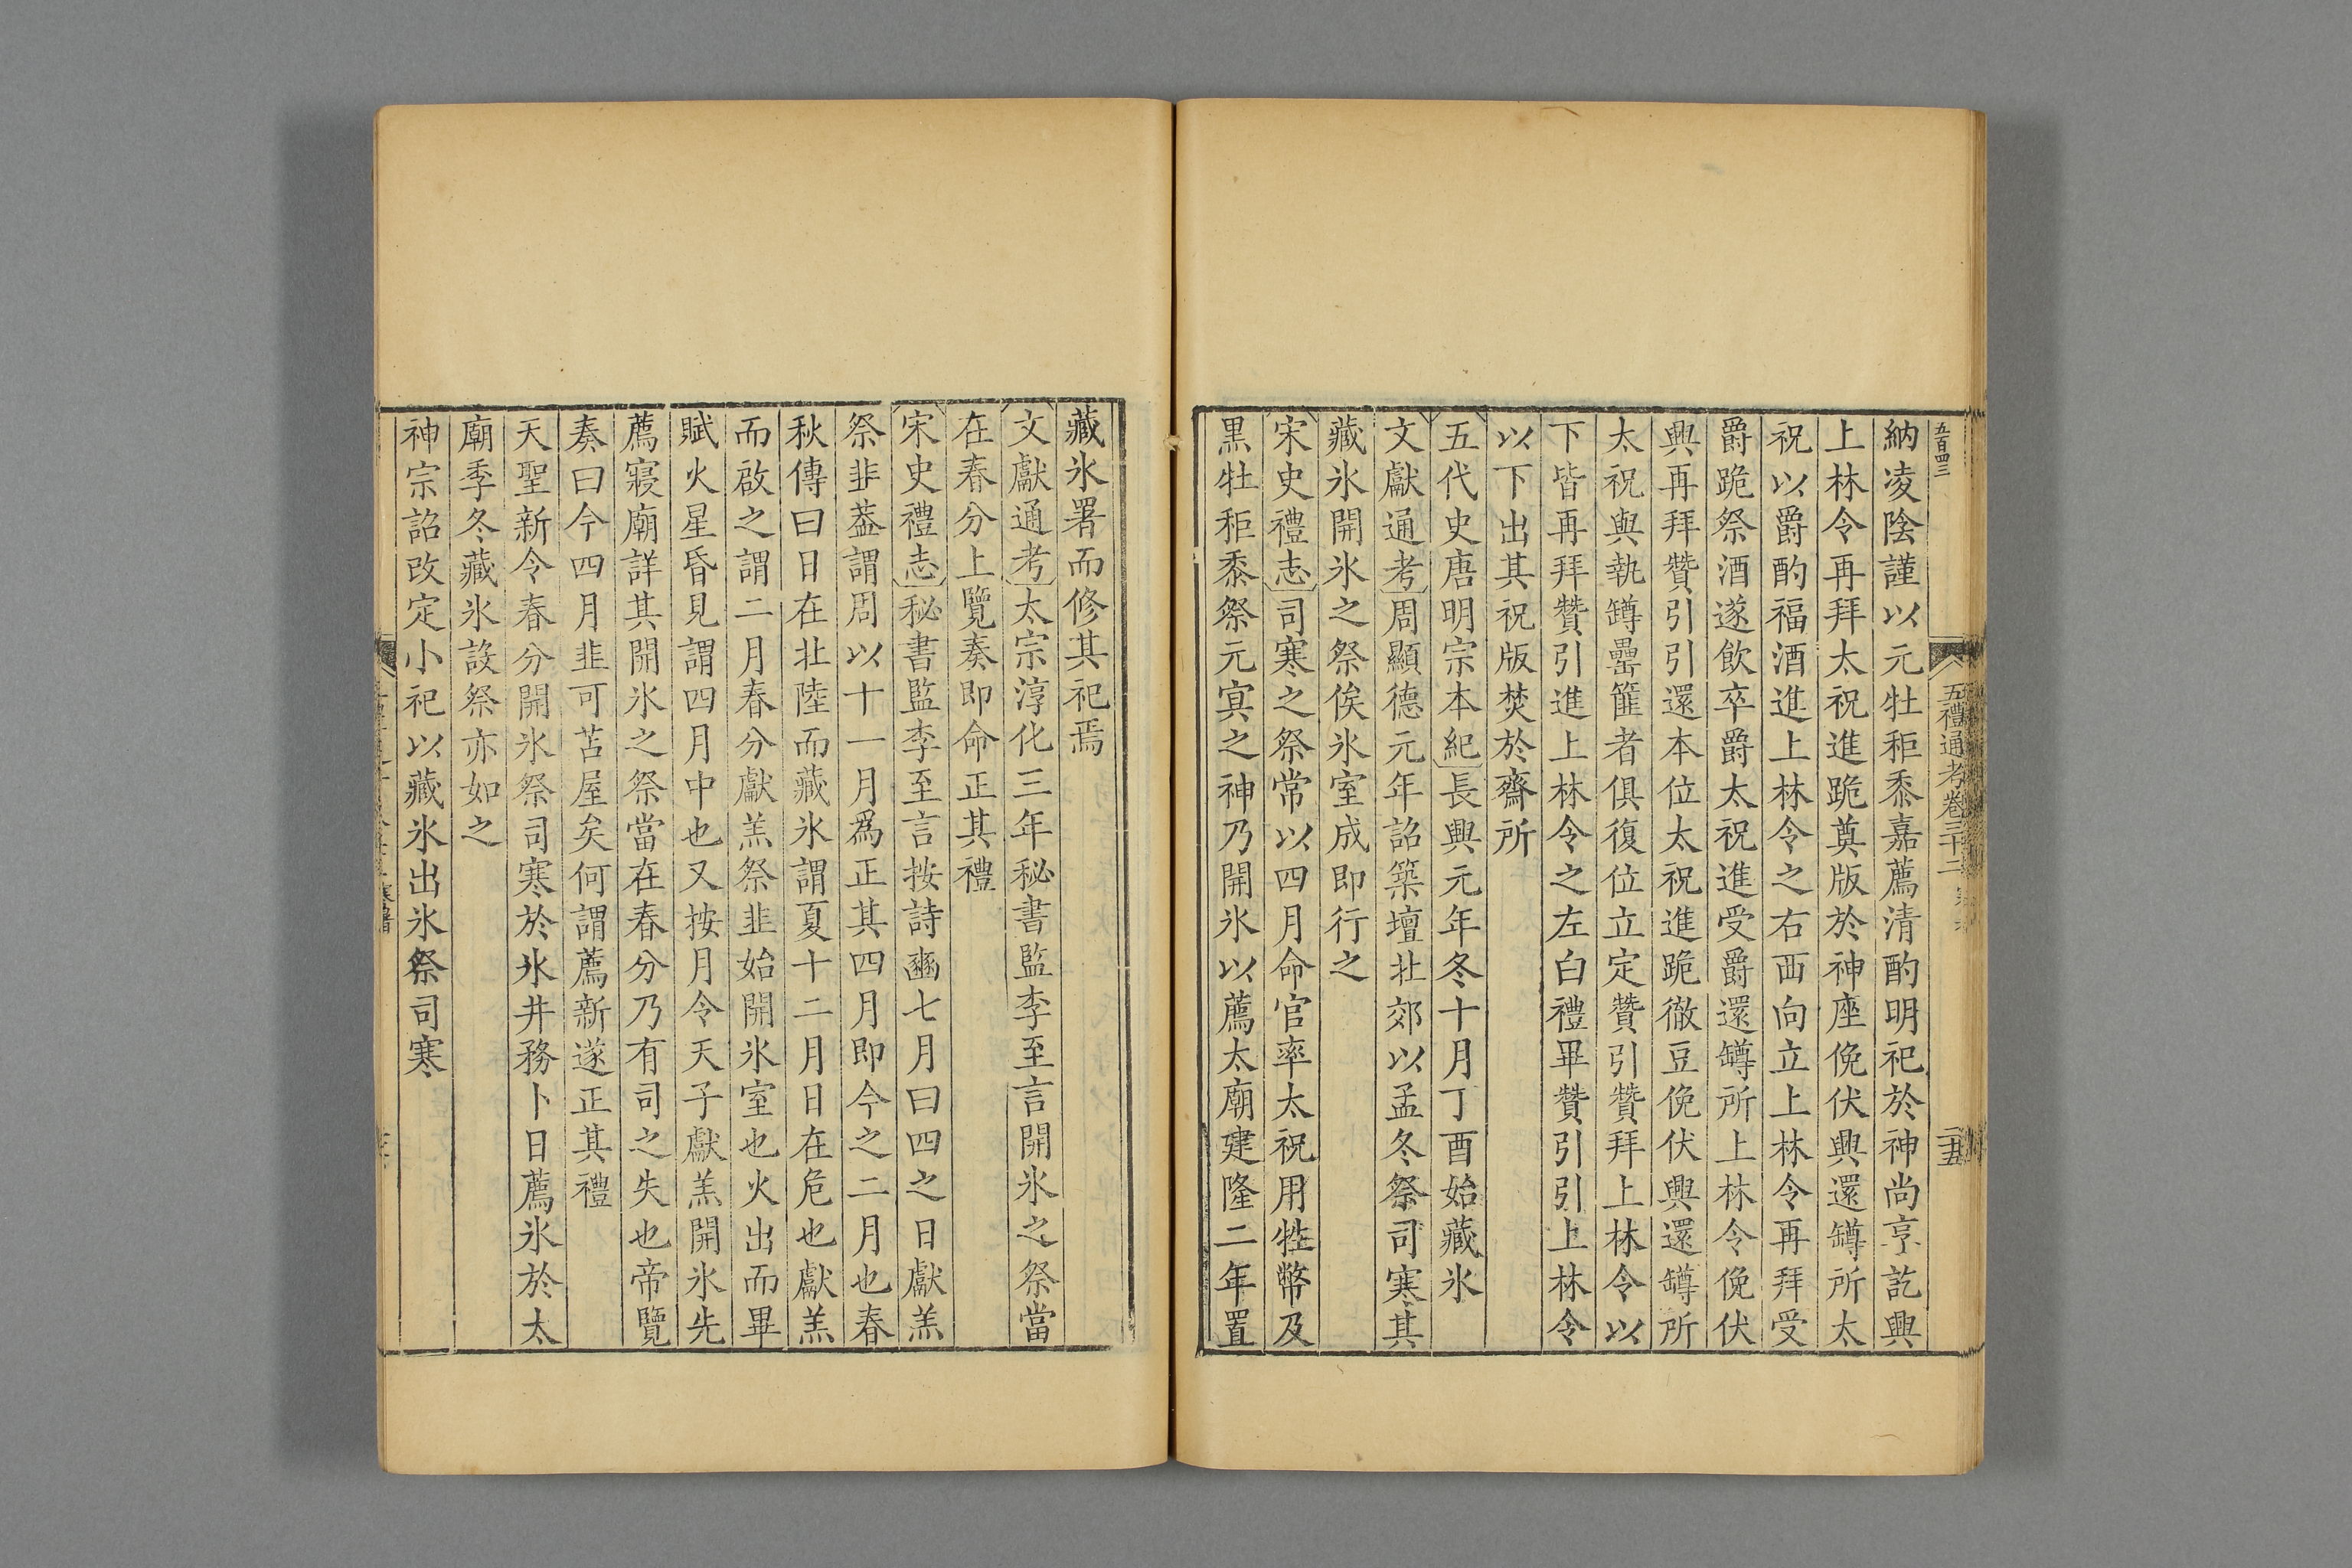 五百四三
五禮通考卷三十二
二十五
納凌陰謹以元牡秬黍嘉薦清酌明祀於神尚亯訖興
上林令再拜太祝進跪奠版於神座俛伏興還罇所太
祝以爵酌福酒進上林令之右西向立上林令再拜受
爵跪祭酒遂飲卒爵太祝進受爵還罇所上林令俛伏
興再拜贊引引還本位太祝進跪徹豆俛伏興還罇所
太祝與執罇罍篚者俱復位立定贊引贊拜上林令以
下皆再拜贊引進上林令之左白禮畢贊引引上林令
以下出其祝版焚於齋所
五代史唐明宗本紀長興元年冬十月丁酉始藏氷
文獻通考周顯德元年詔築壇北郊以孟冬祭司寒其
藏氷開氷之祭俟氷室成即行之
宋史禮志司寒之祭常以四月命官率太祝用牲幣及
黒牡秬黍祭元冥之神乃開氷以薦太廟建隆二年置
藏氷署而修其祀焉
文獻通考太宗淳化三年秘書監李至言開氷之祭當
在春分上覽奏即命正其禮
宋史禮志秘書監李至言按詩豳七月曰四之日獻羔
祭韭葢謂周以十一月爲正其四月即今之二月也春
秋傳曰日在北陸而藏氷謂夏十二月日在危也獻羔
而啟之謂二月春分獻羔祭韭始開氷室也火出而畢
賦火星昏見謂四月中也又按月令天子獻羔開氷先
薦寢廟詳其開氷之祭當在春分乃有司之失也帝覽
奏曰今四月韭可苫屋矣何謂薦新遂正其禮
天聖新令春分開氷祭司寒於氷井務卜日薦氷於太
廟季冬藏氷設祭亦如之
神宗詔改定小祀以藏氷出氷祭司寒